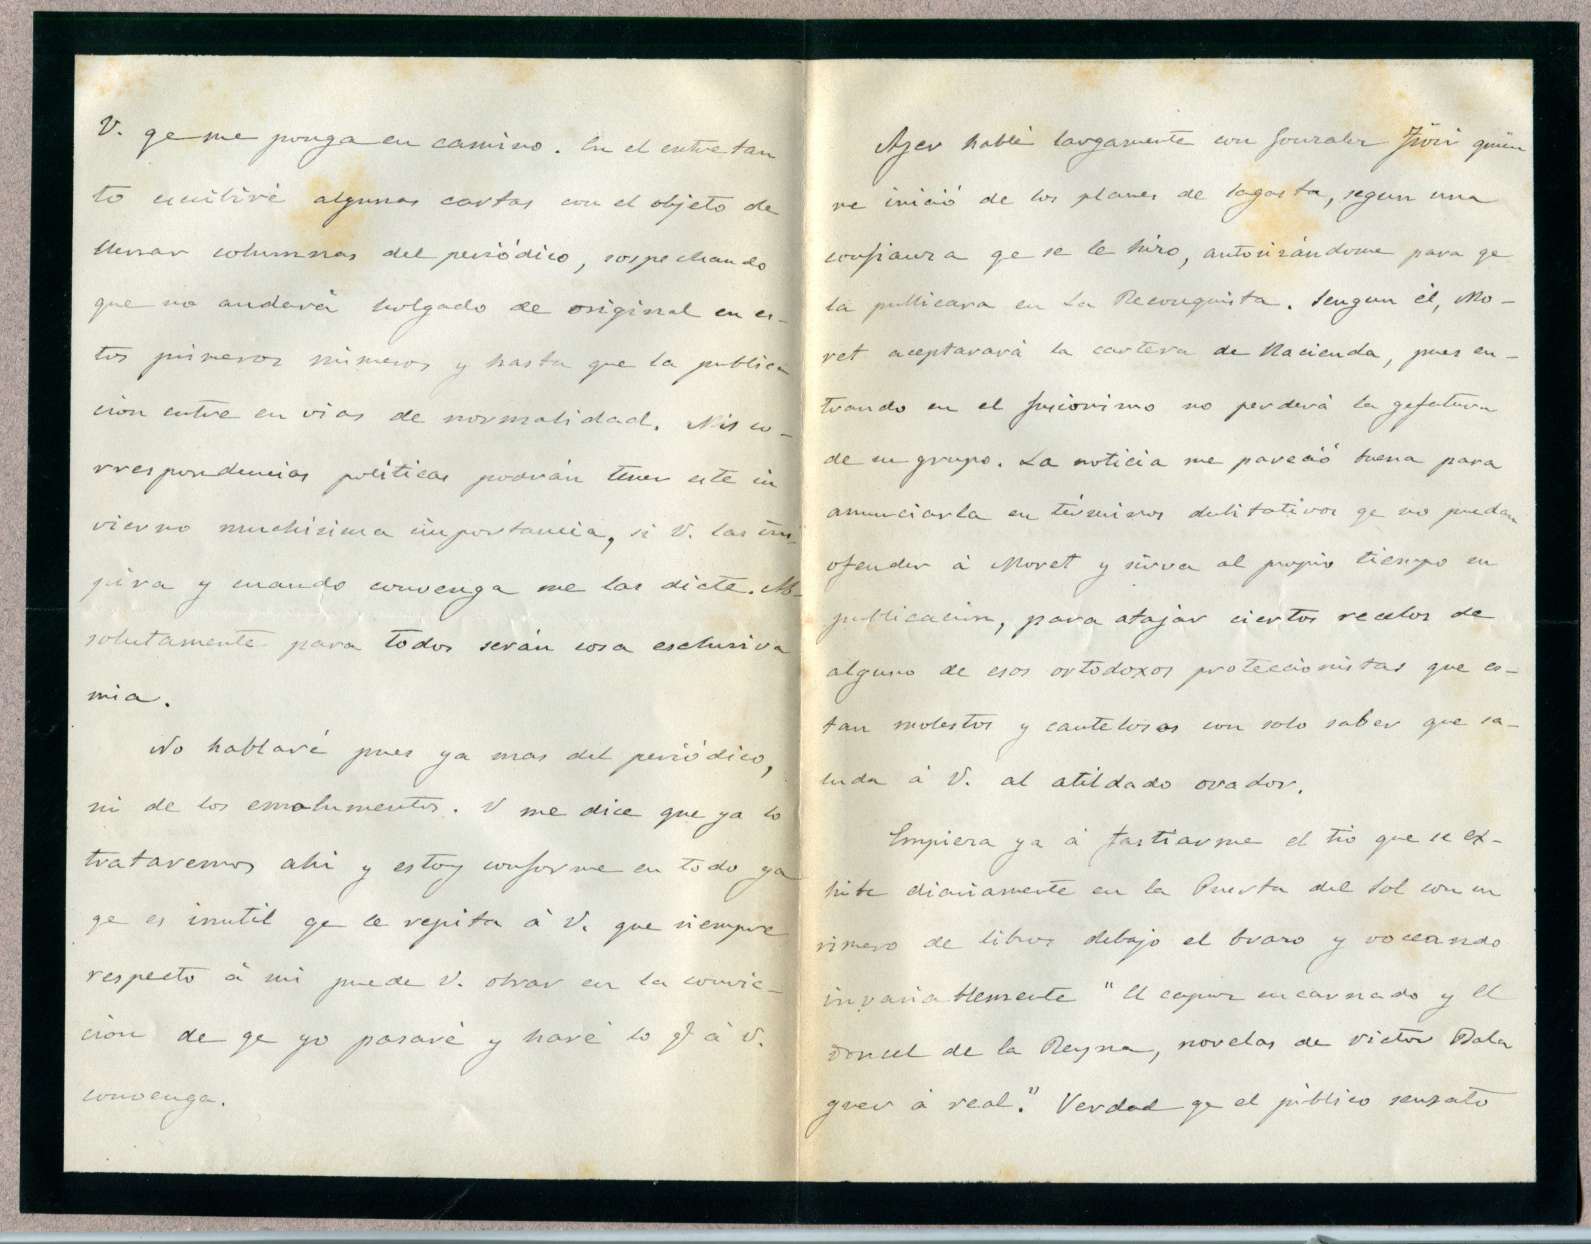 V. qe me ponga en camino. En el entretan
to escribiré algunas cartas con el objeto de
llenar columnas del periódico, sospechando
que no andará holgado de original en es-
tos primeros números y hasta que la publica
ción entre en vias de normalidad. Mis co-
rrespondencias políticas podrán tener este in
vierno muchisima importancia, si V. las ins
pira y cuando convenga me las dicte. Ab-
solutamente para todos serán cosa esclusiva
mia.
No hablaré pues ya mas del periódico,
ni de los emolumentos. V me dice que ya lo
trataremos ahi y estoy conforme en todo ya
qe es inutil qe le repita á V. que siempre
respecto á mi puede V. obrar en la convic-
ción de qe yo pasaré y haré lo q á V.
convenga.
Ayer hablé largamente con Gonzalez quien
me inició de los planes de Sagasta, segun una
confianza qe se le hizo, autorizándome para qe
la publicara en La Reconquista. Sengun él, Mo-
ret aceptarará la cartera de Hacienda, pues en-
trando en el fusionismo no perderá la gefatura
de su grupo. La noticia me pareció buena para
anunciarla en términos dubitativos qe no puedan
ofender á Moret y sirva al propio tiempo su
publicacion, para atajar ciertos recelos de
alguno de esos ortodoxos proteccionistas que es-
tan molestos y cautelosos con solo saber que sa-
luda á V. al atildado orador.
Empieza ya á fastiarme el tio que se ex-
hibe diariamente en la Puerta del Sol con un
rimero de libros debajo el brazo y voceando
invariablemente "El capuz encarnado y El
doncel de la Reyna, novelas de Victor Bala
guer á real." Verdad qe el público sensato